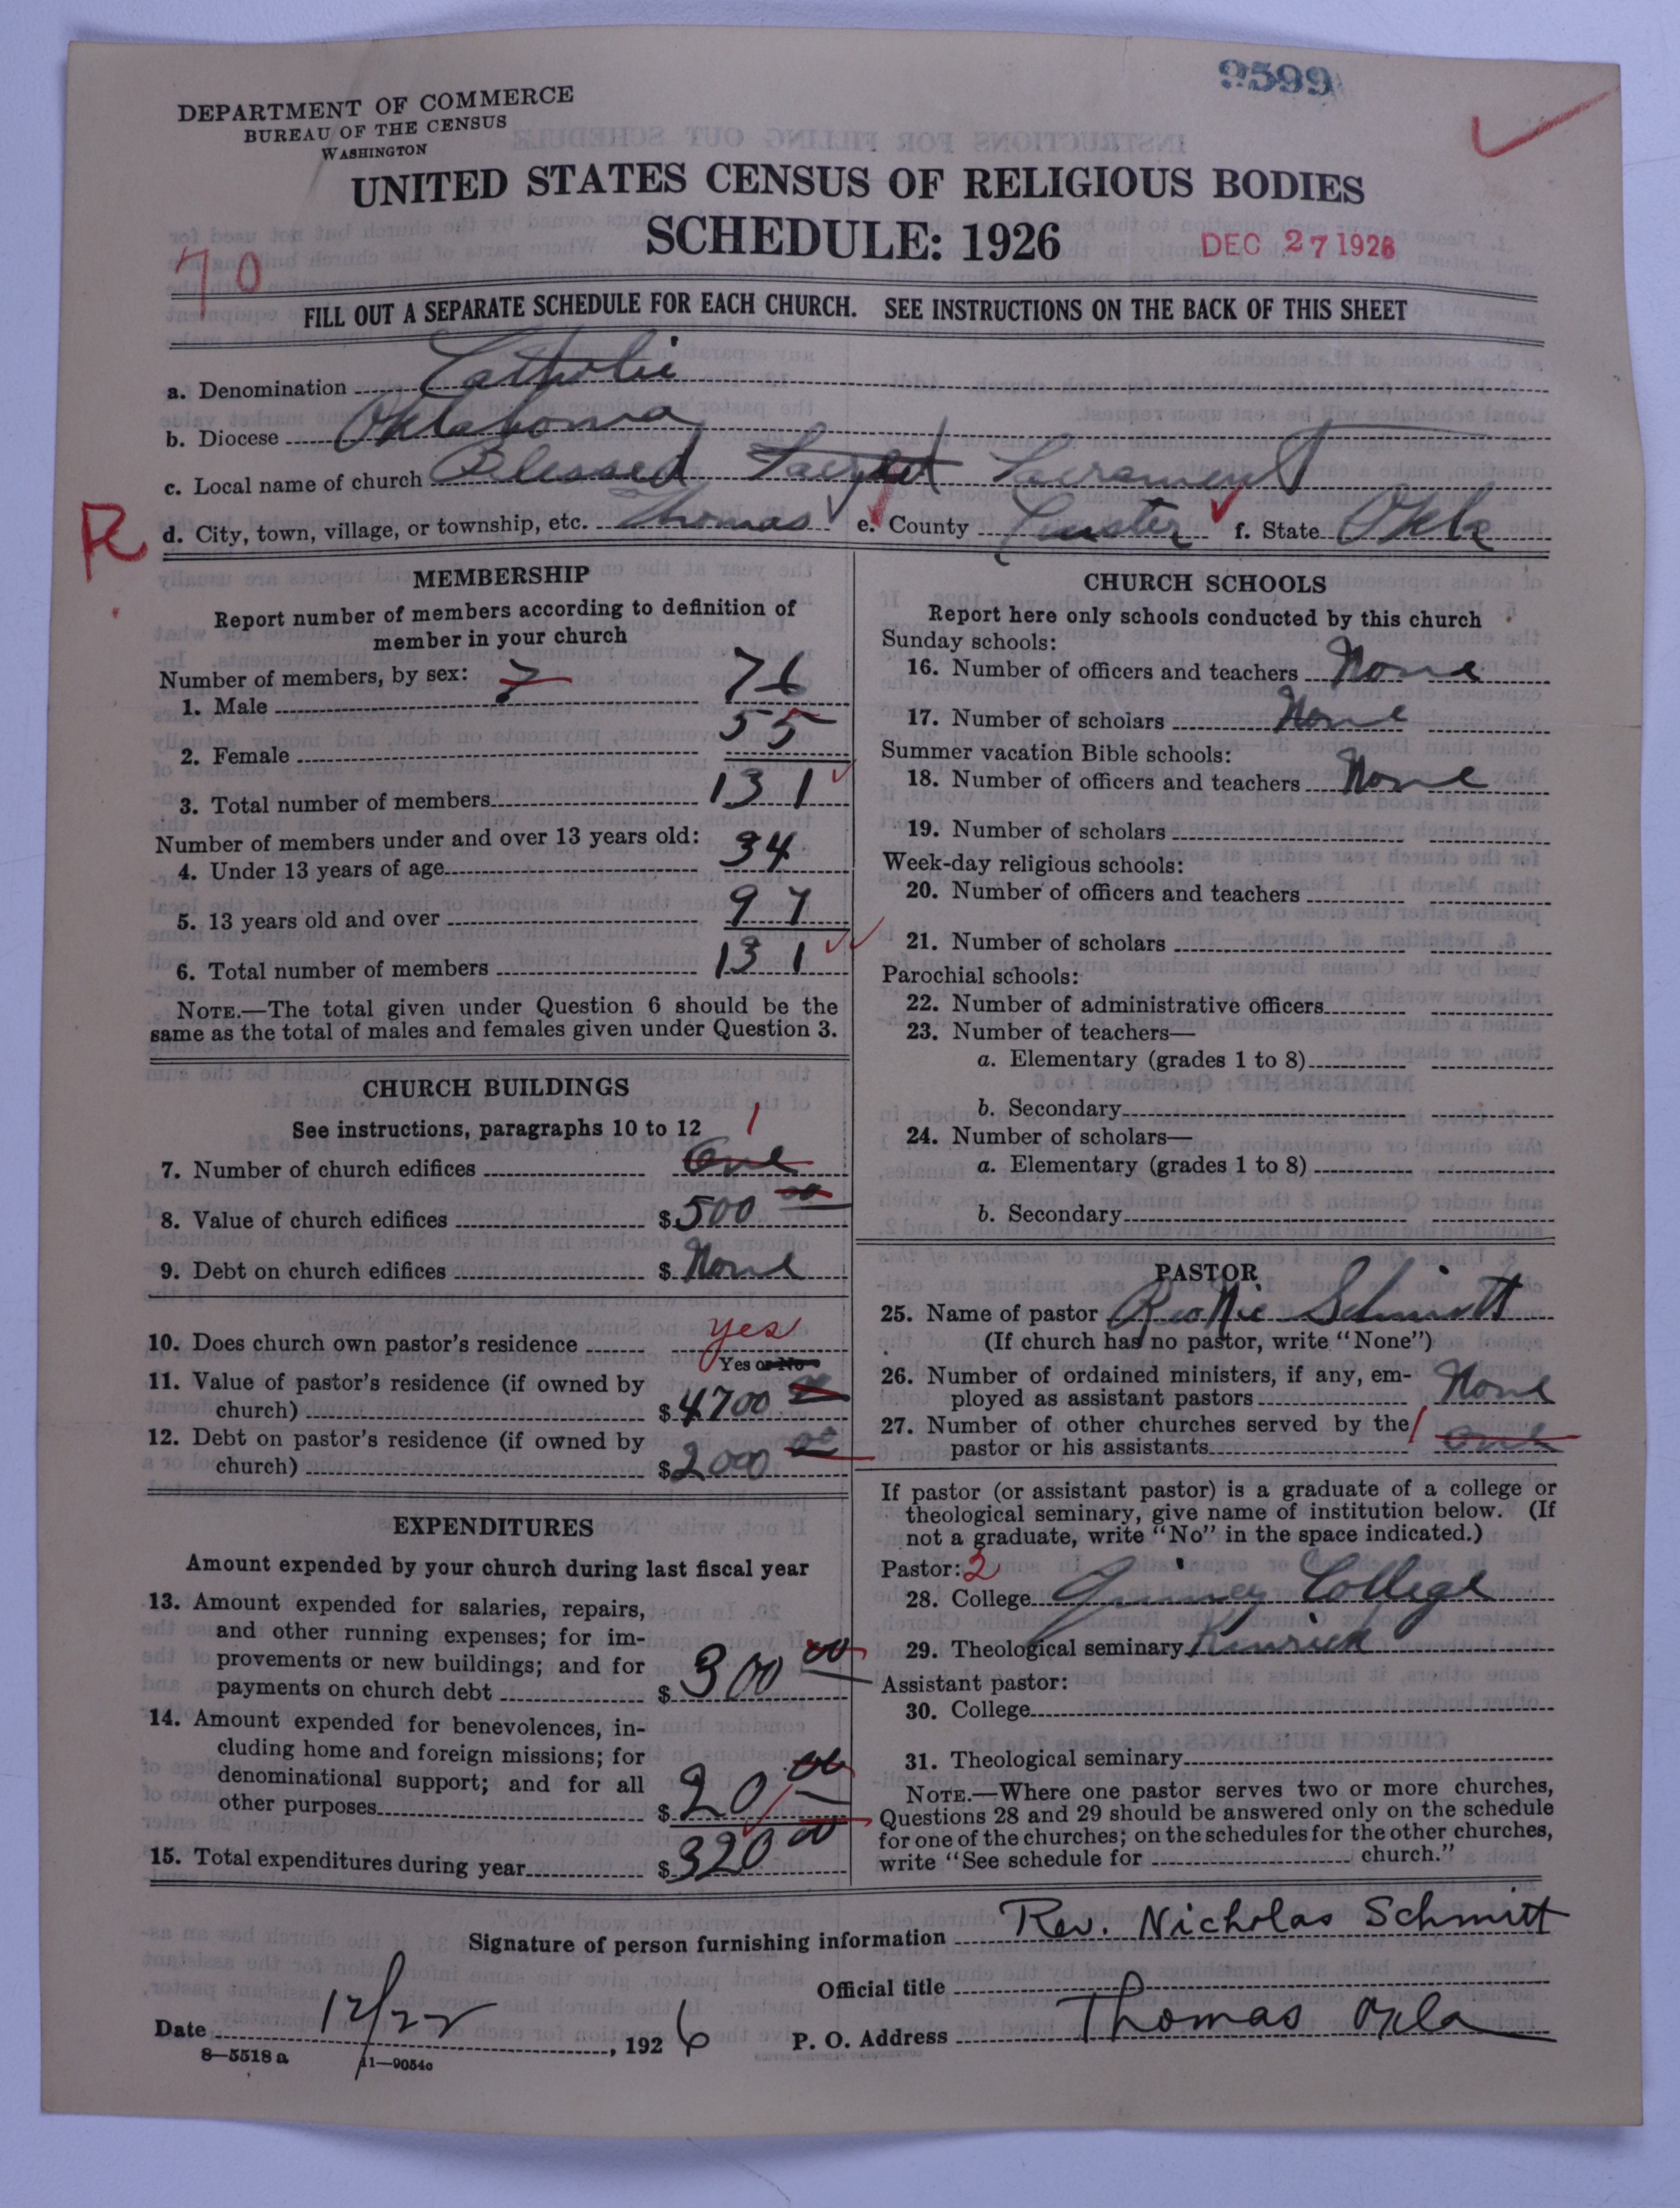 9599
DEPARTMENT OF COMMERCE
BUREAU OF THE CENSUS
WASHINGTON
UNITED STATES CENSUS OF RELIGIOUS BODIES
SCHEDULE: 1926
DEC 27 1926
70
FILL OUT A SEPARATE SCHEDULE FOR EACH CHURCH. SEE INSTRUCTIONS ON THE BACK OF THIS SHEET
a. Denomination Catholic
b. Diocese Oklahoma
c. Local name of church Blessed Sacrament
R
d. City, town, village, or township, etc. Thomas e. County Custer f. State Okla
MEMBERSHIP
Report number of members according to definition of
member in your church
Number of members, by sex: 7
1. Male 76
2. Female 55
3. Total number of members 131
Number of members under and over 13 years old:
4. Under 13 years of age 34
5. 13 years old and over 97
6. Total number of members 131
NOTE.—The total given under Question 6 should be the
same as the total of males and females given under Question 3.
CHURCH BUILDINGS
See instructions, paragraphs 10 to 12 1
7. Number of church edifices One
8. Value of church edifices $ 500 00
9. Debt on church edifices $ None
10. Does church own pastor's residence yes
Yes or No
11. Value of pastor's residence (if owned by
church) $ 4700 00
12. Debt on pastor's residence (if owned by
church) $ 2000 00
EXPENDITURES
Amount expended by your church during last fiscal year
13. Amount expended for salaries, repairs,
and other running expenses; for im-
provements or new buildings; and for
payments on church debt $ 300 00
14. Amount expended for benevolences, in-
cluding home and foreign missions; for
denominational support; and for all
other purposes $ 20 00
15. Total expenditures during year $ 320 00
CHURCH SCHOOLS
Report here only schools conducted by this church
Sunday schools:
16. Number of officers and teachers None
17. Number of scholars None
Summer vacation Bible schools:
18. Number of officers and teachers None
19. Number of scholars
Week-day religious schools:
20. Number of officers and teachers
21. Number of scholars
Parochial schools:
22. Number of administrative officers
23. Number of teachers—
a. Elementary (grades 1 to 8)
b. Secondary
24. Number of scholars—
a. Elementary (grades 1 to 8)
b. Secondary
PASTOR
25. Name of pastor Schmitt
(If church has no pastor, write "None")
26. Number of ordained ministers, if any, em-
ployed as assistant pastors None
27. Number of other churches served by the 1
pastor or his assistants one
If pastor (or assistant pastor) is a graduate of a college or
theological seminary, give name of institution below. (If
not a graduate, write "No" in the space indicated.)
Pastor: 2
28. College Quincy College
29. Theological seminary Kenrick
Assistant pastor:
30. College
31. Theological seminary
NOTE.—Where one pastor serves two or more churches,
Questions 28 and 29 should be answered only on the schedule
for one of the churches; on the schedules for the other churches,
write "See schedule for church."
Signature of person furnishing information Rev. Nicholas Schmitt
Official title
Date 12/22, 1926 P. O. Address Thomas Okla
8—5518a 11—9054c